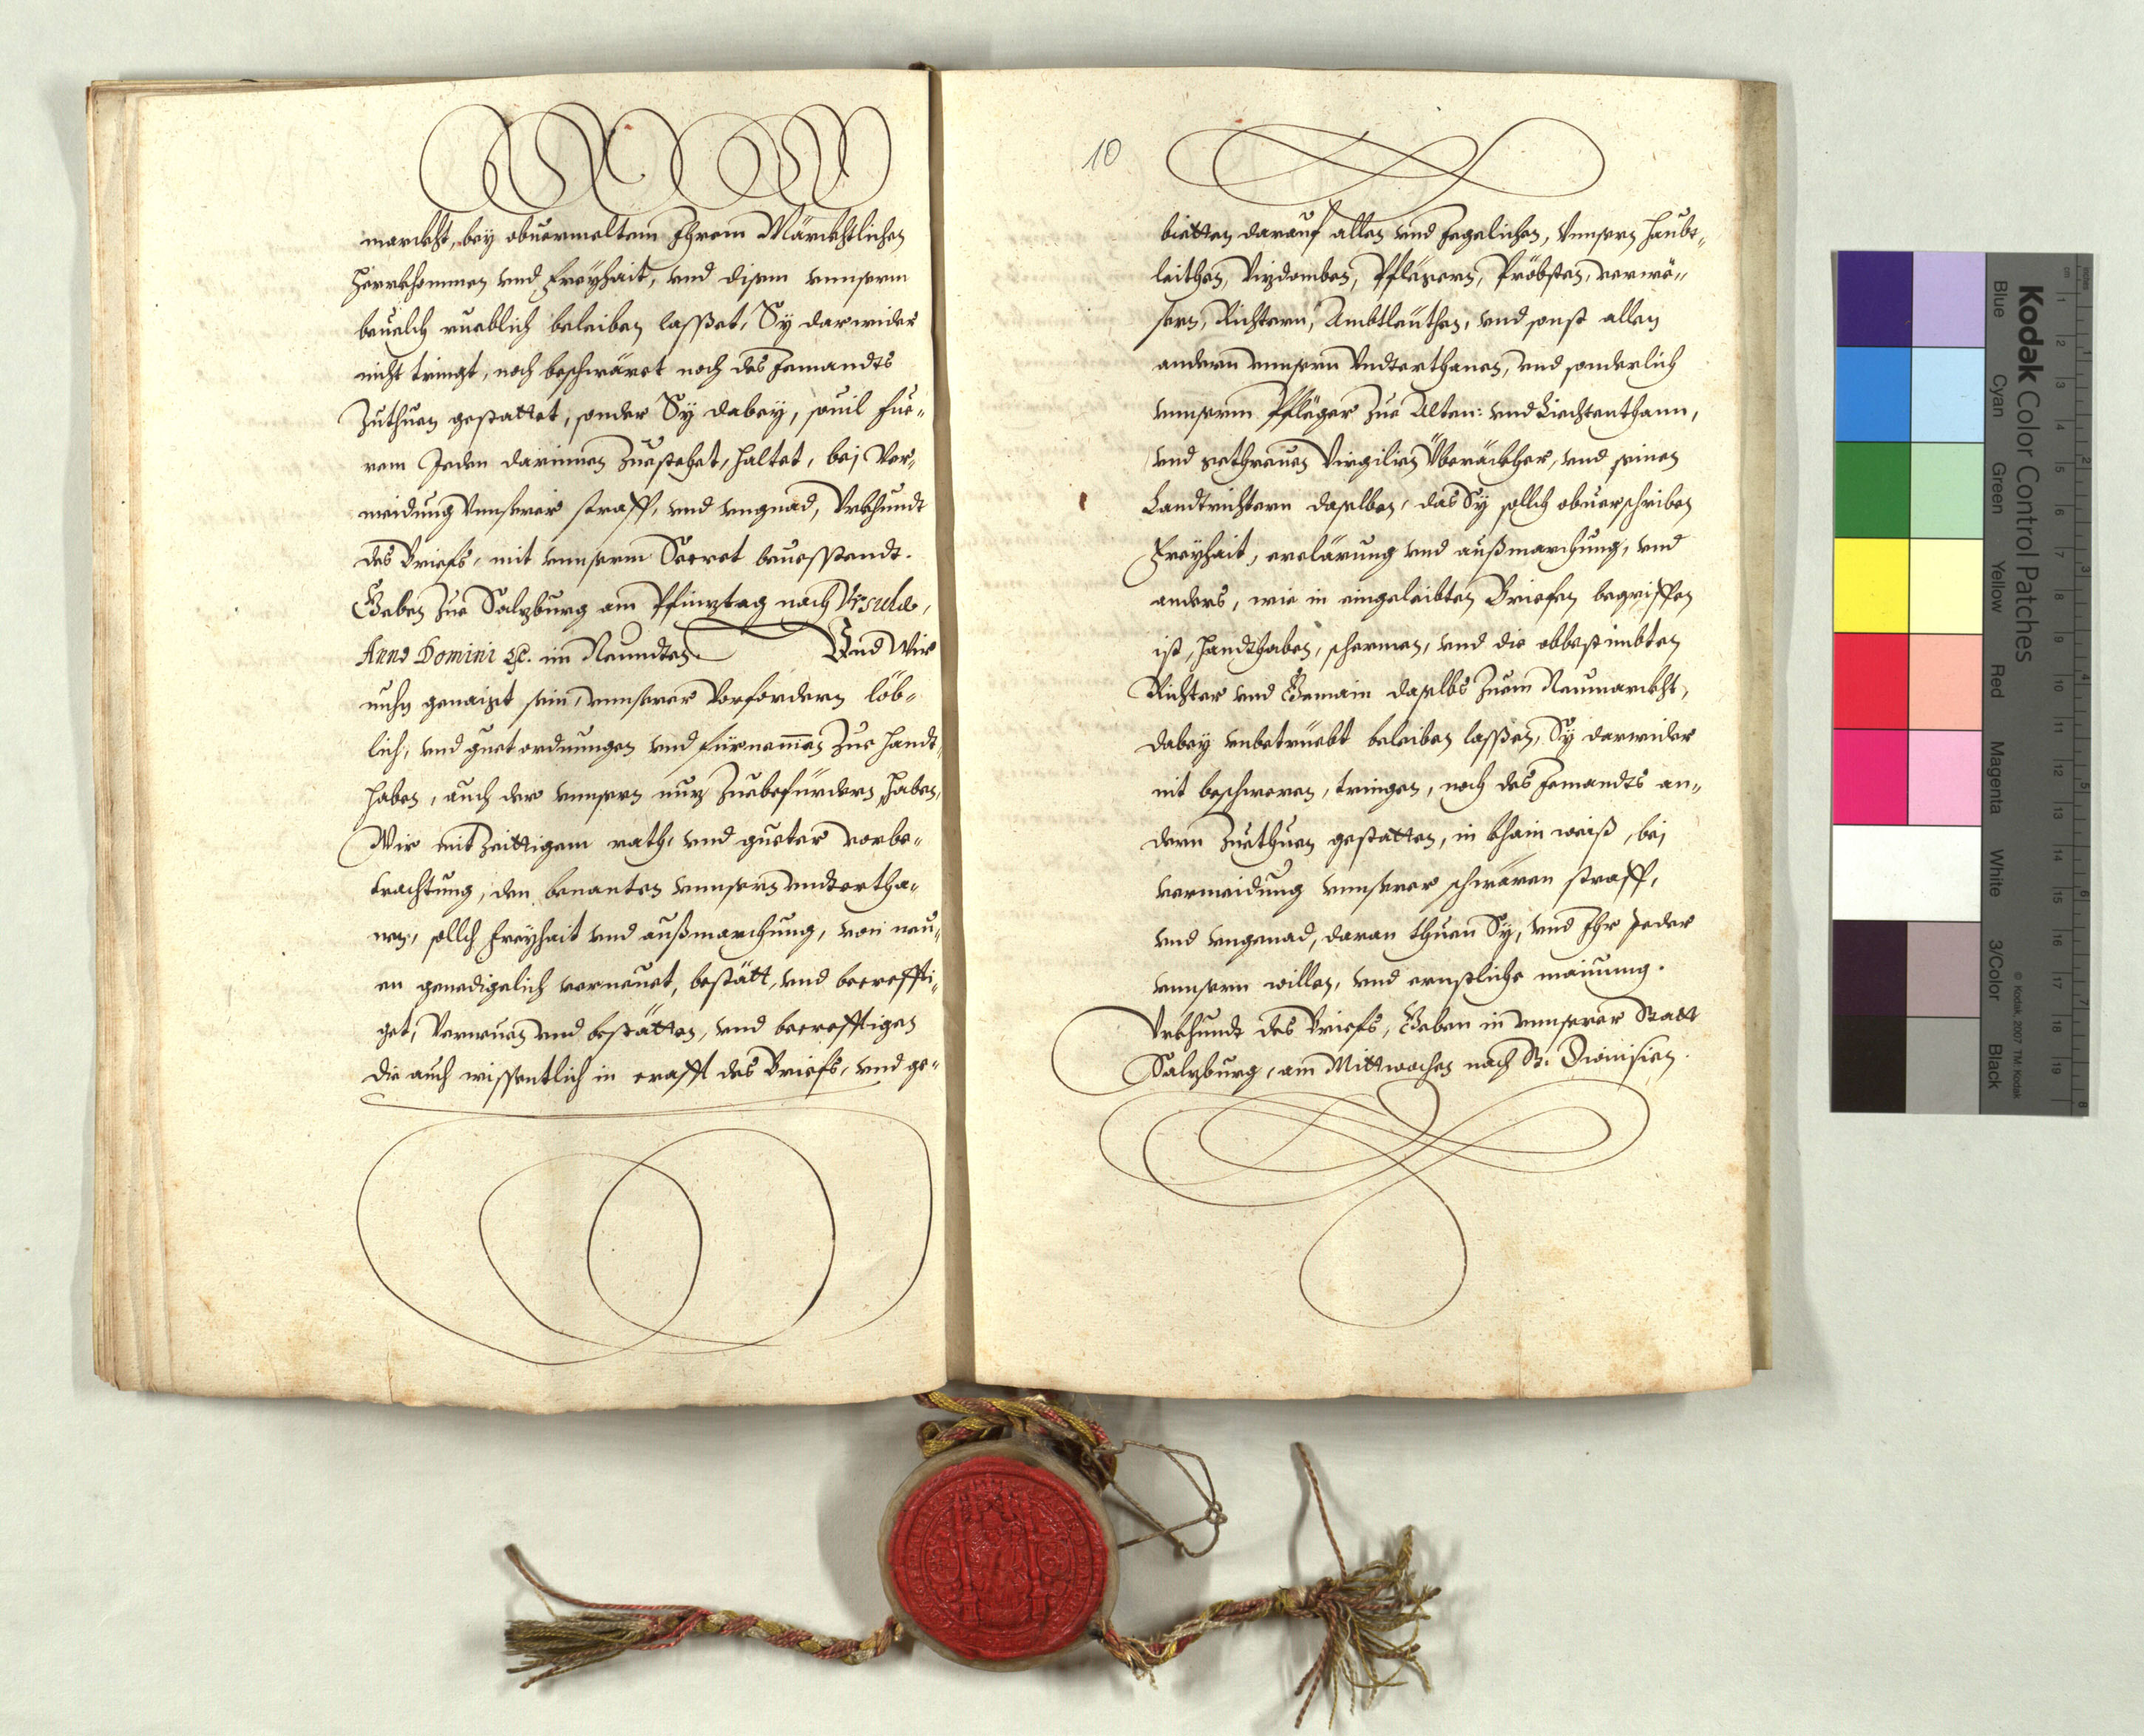 marckht, bey obuermeltem Ihrem Märckhtlichen
Herrkhommen vnd Freyhait, vnd disem vnnserm
beuelch rueblich beleiben lasset, Sy darwider
nicht tringt, noch beschwäret noch des Jemandts
Zuthuen gestattet, sonder Sy dabey, souil Eue-
rem Jeden darinnen Zuestehet, haltet, bej Ver-
meidung Vnnserer straff, vnd vngnad, Vrkhundt
des Briefs, mit vnnserm Secret
Geben Zue Salzburg am Pfinztag nach Vrsulæ,
Anno Domini &c. im Neundten. Vnd Wir
nuhn genaigt sein, vnnserer Vorfordern löb-
lich, vnd guet ordnungen vnd fürnemen Zue handt-
haben, auch der vnnsern nuz Zuebefürdern, haben,
Wir mit Zeittigem rath, vnd gueter vorbe-
trachtung, den benanten vnnsern vndtertha-
nen, sollch Freyhait vnd außmarchung, von neu-
en genedigelich verneuet, bestätt, vnd becreffti-
get, Verneuen vnd bestätten, vnd becrefftigen
die auch wissentlich in crafft des Briefs, vnd ge-
10
bietten darauf allen vnd Jegelichen, Vnnsern Haubt-
leithen, Vizdomben, Pflegern, Pröbsten, verwe-
sern, Richtern, Ambtleuthen, vnd sonst allen
andern vnnsern Vndterthanen, vnd sonderlich
vnnserm Pfleger Zue Alten: vnd Liechtenthann,
vnd gethreuen Virgilien Überäckher, vnd seinen
Landtrichtern daselben, das Sy sollch obuerschriben
Freyhait, erclärung vnd außmarchung, vnd
anders, wie in eingeleibten Briefen begriffen
ist, handthaben, schermen, vnd die obbestimbten
Richter vnd Gemain daselbs Zuem Neumarckht,
dabey vnbetruebt beleiben lassen, Sy darwider
nit beschweren, tringen, noch des Jemandts an-
dern Zuethuen gestatten, in khain weiß, bej
vermeidung vnnserer schwären straff,
vnd vngenad, daran thuen Sy, vnd Ihr Jeder
vnnsern willen, vnd ernstliche mainung.
Vrkhundt des Briefs, Geben in vnnserer Statt
Salzburg, am Mittwochen nach St. Dionisien.
Kodak Color Control Patches
Blue Cyan Green Yellow Red Magenta White 3/Color Black
© Kodak, 2007 TM: Kodak
cm 1 2 3 4 5 6 7 8 9 10 11 12 13 14 15 16 17 18 19
inches 1 2 3 4 5 6 7 8